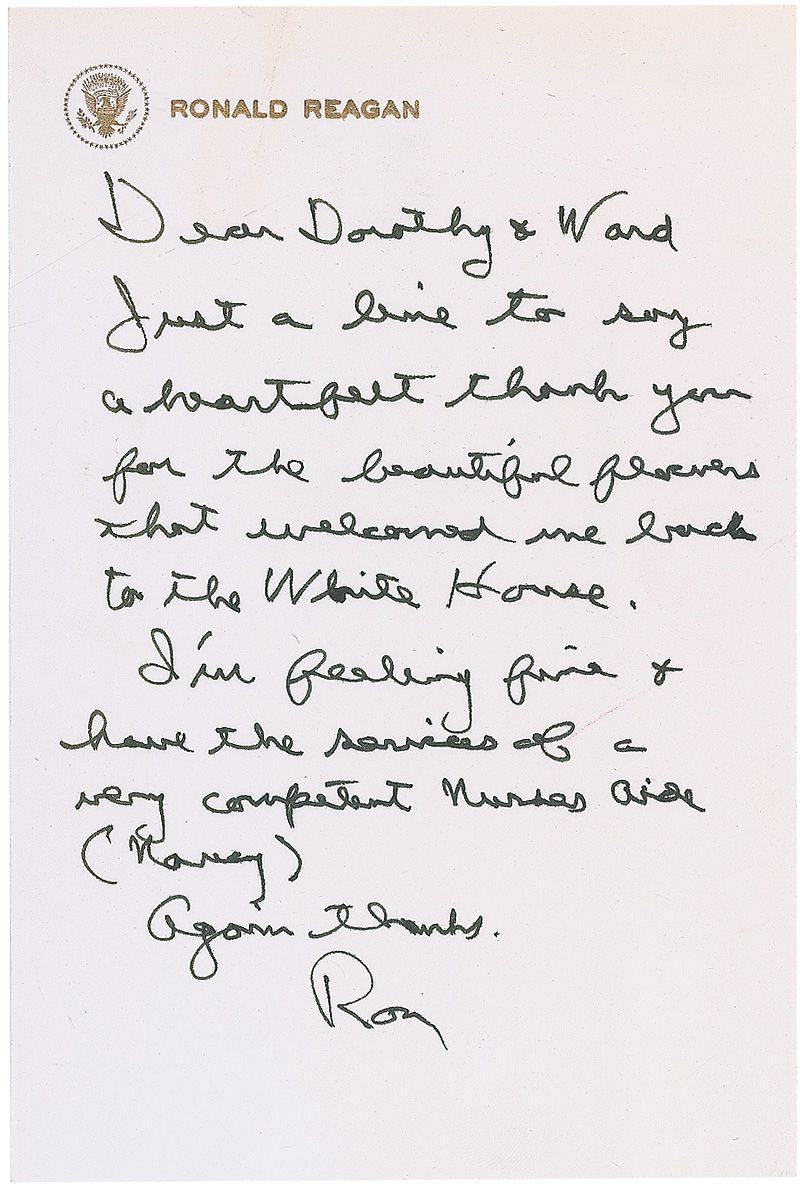 RONALD REAGAN
Dear Dorothy & Ward
Just a line to say
a heartfelt thank you
for the beautiful flowers
that welcomed me back
to the White House.
I'm feeling fine &
have the services of a
very competent Nurses Aide
(Nancy)
Again thanks.
Ron